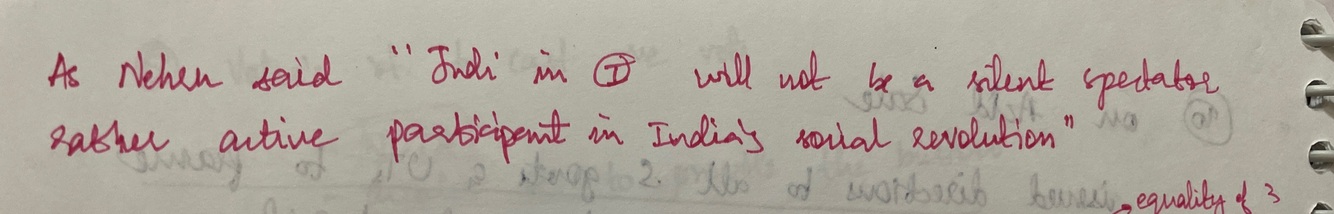 As Nehru said "Indi in Ⓘ will not be a silent spectator
rather active participent in India's social revolution"
equality of 3